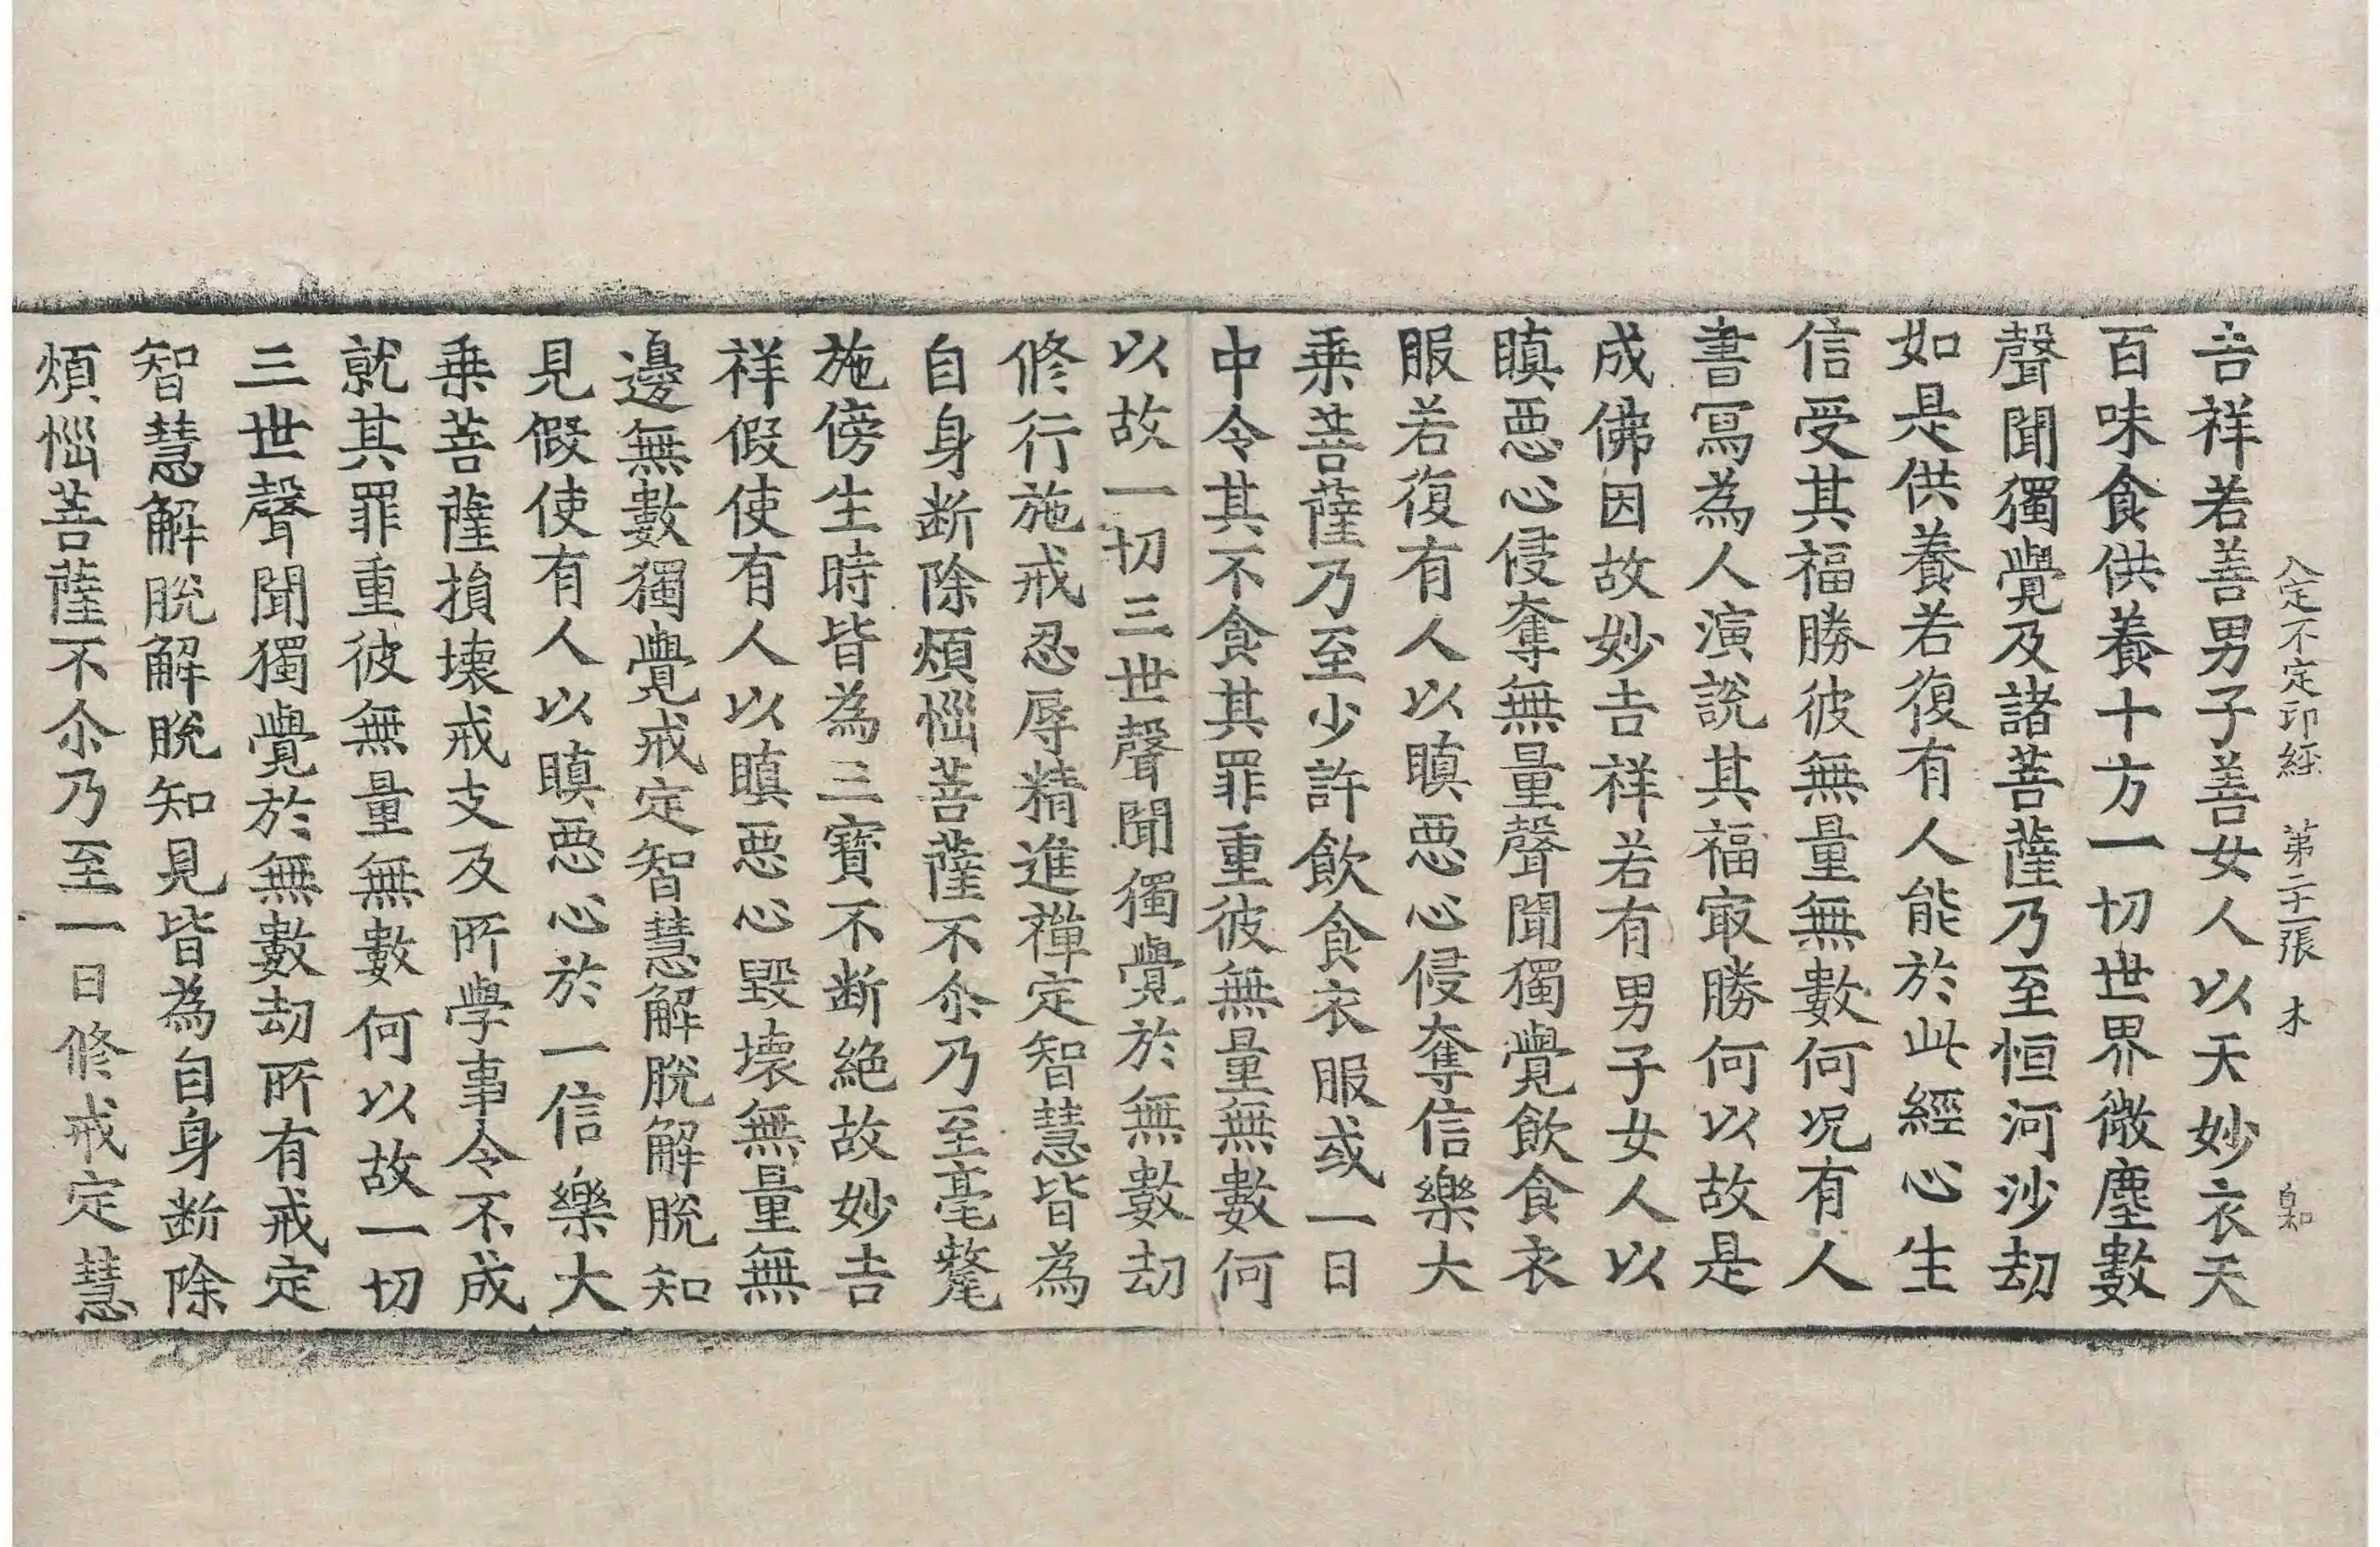 入定不定印經 第二十一張 木
吉祥若善男子善女人以天妙衣天
百味食供養十方一切世界微塵數
聲聞獨覺及諸菩薩乃至恒河沙劫
如是供養若復有人能於此經心生
信受其福勝彼無量無數何况有人
書寫為人演說其福㝡勝何以故是
成佛因故妙吉祥若有男子女人以
瞋惡心侵奪無量聲聞獨覺飲食衣
服若復有人以瞋惡心侵奪信樂大
乗菩薩乃至少許飲食衣服或一日
中令其不食其罪重彼無量無數何
以故一切三世聲聞獨覺於無數劫
修行施戒忍辱精進禪定智慧皆為
自身断除煩惱菩薩不尒乃至毫氂
施傍生時皆為三寶不断絶故妙吉
祥假使有人以瞋惡心毀壞無量無
邊無數獨覺戒定智慧解脫解脫知
見假使有人以瞋惡心於一信樂大
乗菩薩損壊戒支及所學事令不成
就其罪重彼無量無數何以故一切
三世聲聞獨覺於無數劫所有戒定
智慧解脫解脫知見皆為自身断除
煩惱菩薩不尒乃至一日修戒定慧